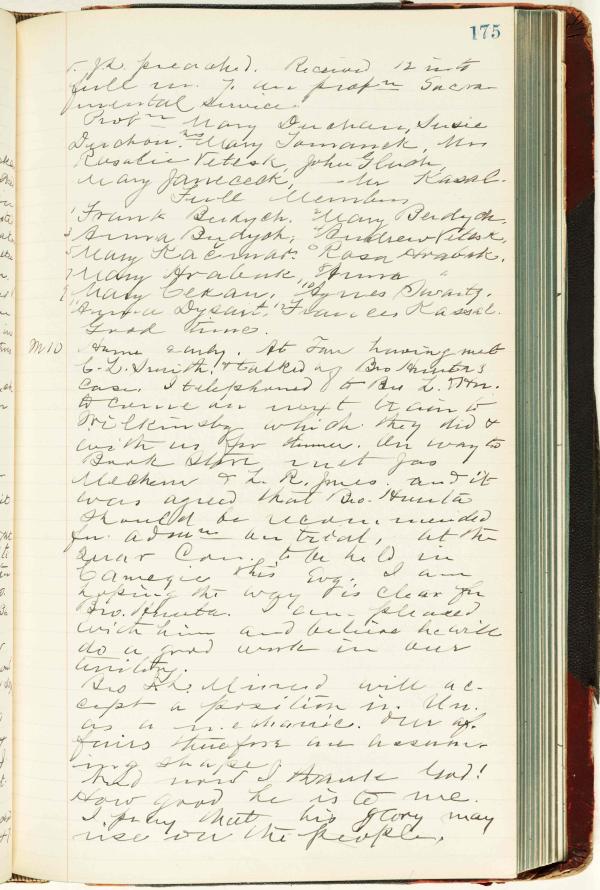 175
preached. Received 12 into
full m. on prof'n Sacra-
mental service.
Prob'n Mary Duchan, Susie
Duchon. Mrs Mary Tomanek, Mrs
Rosalie Petesk, John Glush,
Mary Janececk, Mr Kasal.
Full Members
1 Frank Berdych. 2 Mary Berdych.
3 Anna Berdych, 4 Andrew Petesk,
5 Mary Kacirnak. 6 Rosa Hrabak.
7 Mary Hrabak, 8 Anna "
9 Mary Cekan, 10 Agnes Swarts.
11 Anna Dysart. 12 Frances Kassal.
Good time.
M 10 Home early. At Fan having met
C. L. Smith, & talked of Bro Hunter's
case. I telephoned to Bro L. & H.
to come on next train to
Wilkinsbg which they did &
with us for dinner. On way to
Book Store met Jas
Mechem & L. R. Jones. and it
was agreed that Bro. Hunter
should be recommended
for adm'n on trial, at the
Quar Con. to be held in
Carnegie this Evg. I am
hoping the way is clear for
Bro. Hunter. I am pleased
with him and believe he will
do a good work in our
Bro will ac-
cept a position in Un.
as a mechanic. Our af-
fairs therefore are assum-
ing shape!
And now I thank God!
How good he is to me.
I pray that his glory may
rise on the people.